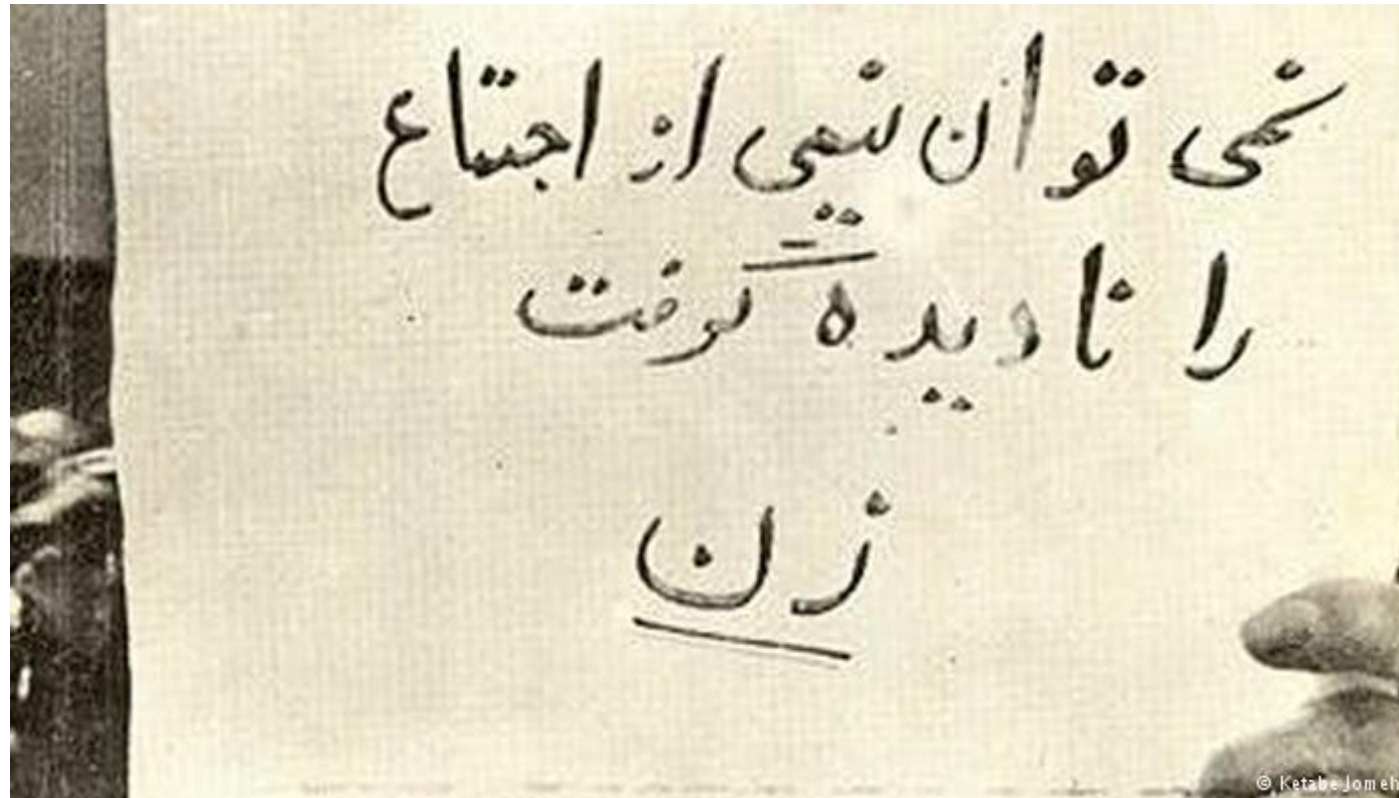 نمی توان نیمی از اجتماع
را نادیده گرفت
زن
© Ketabe Jomeh